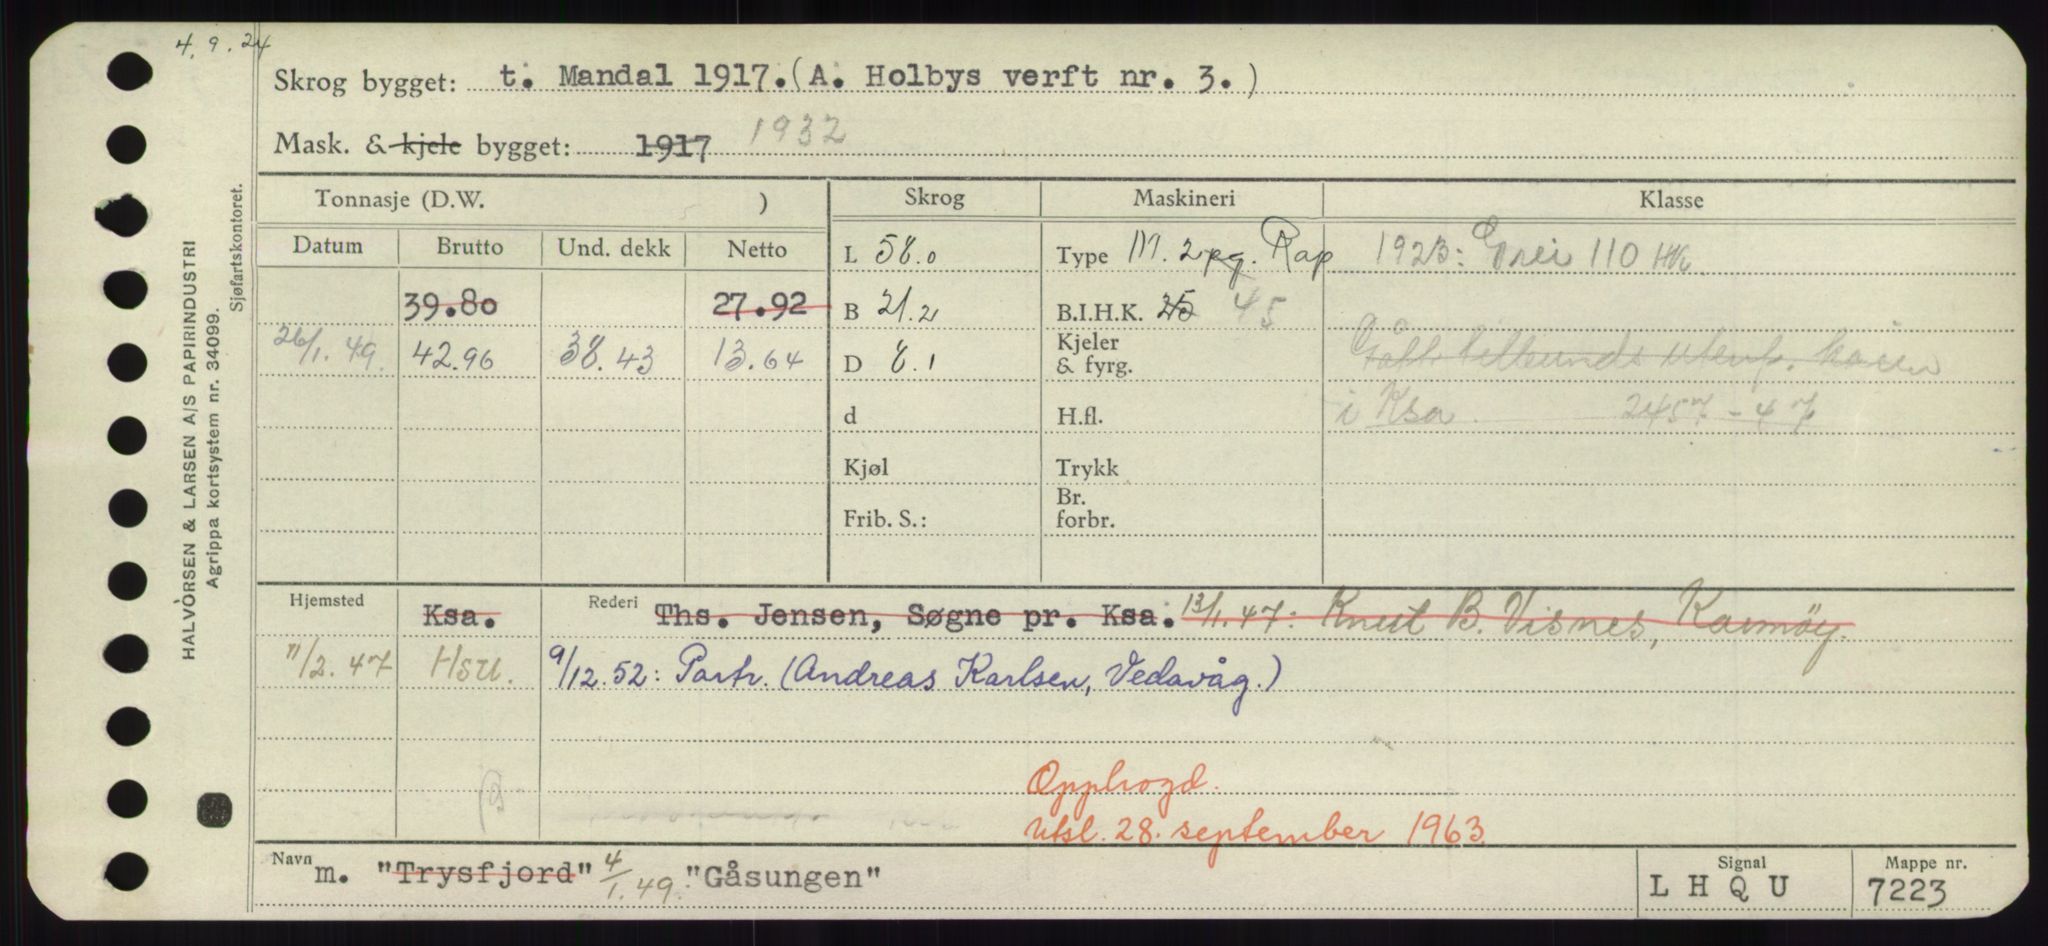 4. 9. 24
Skrog bygget: t. Mandal 1917. (A. Holbys verft nr. 3.)
Mask. & kjele bygget: 1917 1932
HALVORSEN & LARSEN A/S PAPIRINDUSTRI
Agrippa kortsystem nr. 34099.
Sjøfartskontoret.
Tonnasje (D.W. ) Skrog Maskineri Klasse
Datum Brutto Und. dekk Netto
L 58.0 Type M. 2 pg. Rap 1923: 110 HK
39.80 27.92 B 21.2 B.I.H.K. 25 45
26/1.49. 42.96 38.43 13.64 D 8.1 Kjeler & fyrg.
d H.fl. i Ksa. 2457-47
Kjøl Trykk
Frib. S.: Br. forbr.
Hjemsted Ksa. Rederi Ths. Jensen, Søgne pr. Ksa. 13/1.47: Knut B. Visnes, Karmøy.
11/2.47 Hsu. 9/12.52: Partr. (Andreas Karlsen, Vedavåg.)
Opphogd.
Utsl. 28. september 1963.
Navn m. "Trysfjord" 4/1.49. "Gåsungen" Signal LHQU Mappe nr. 7223